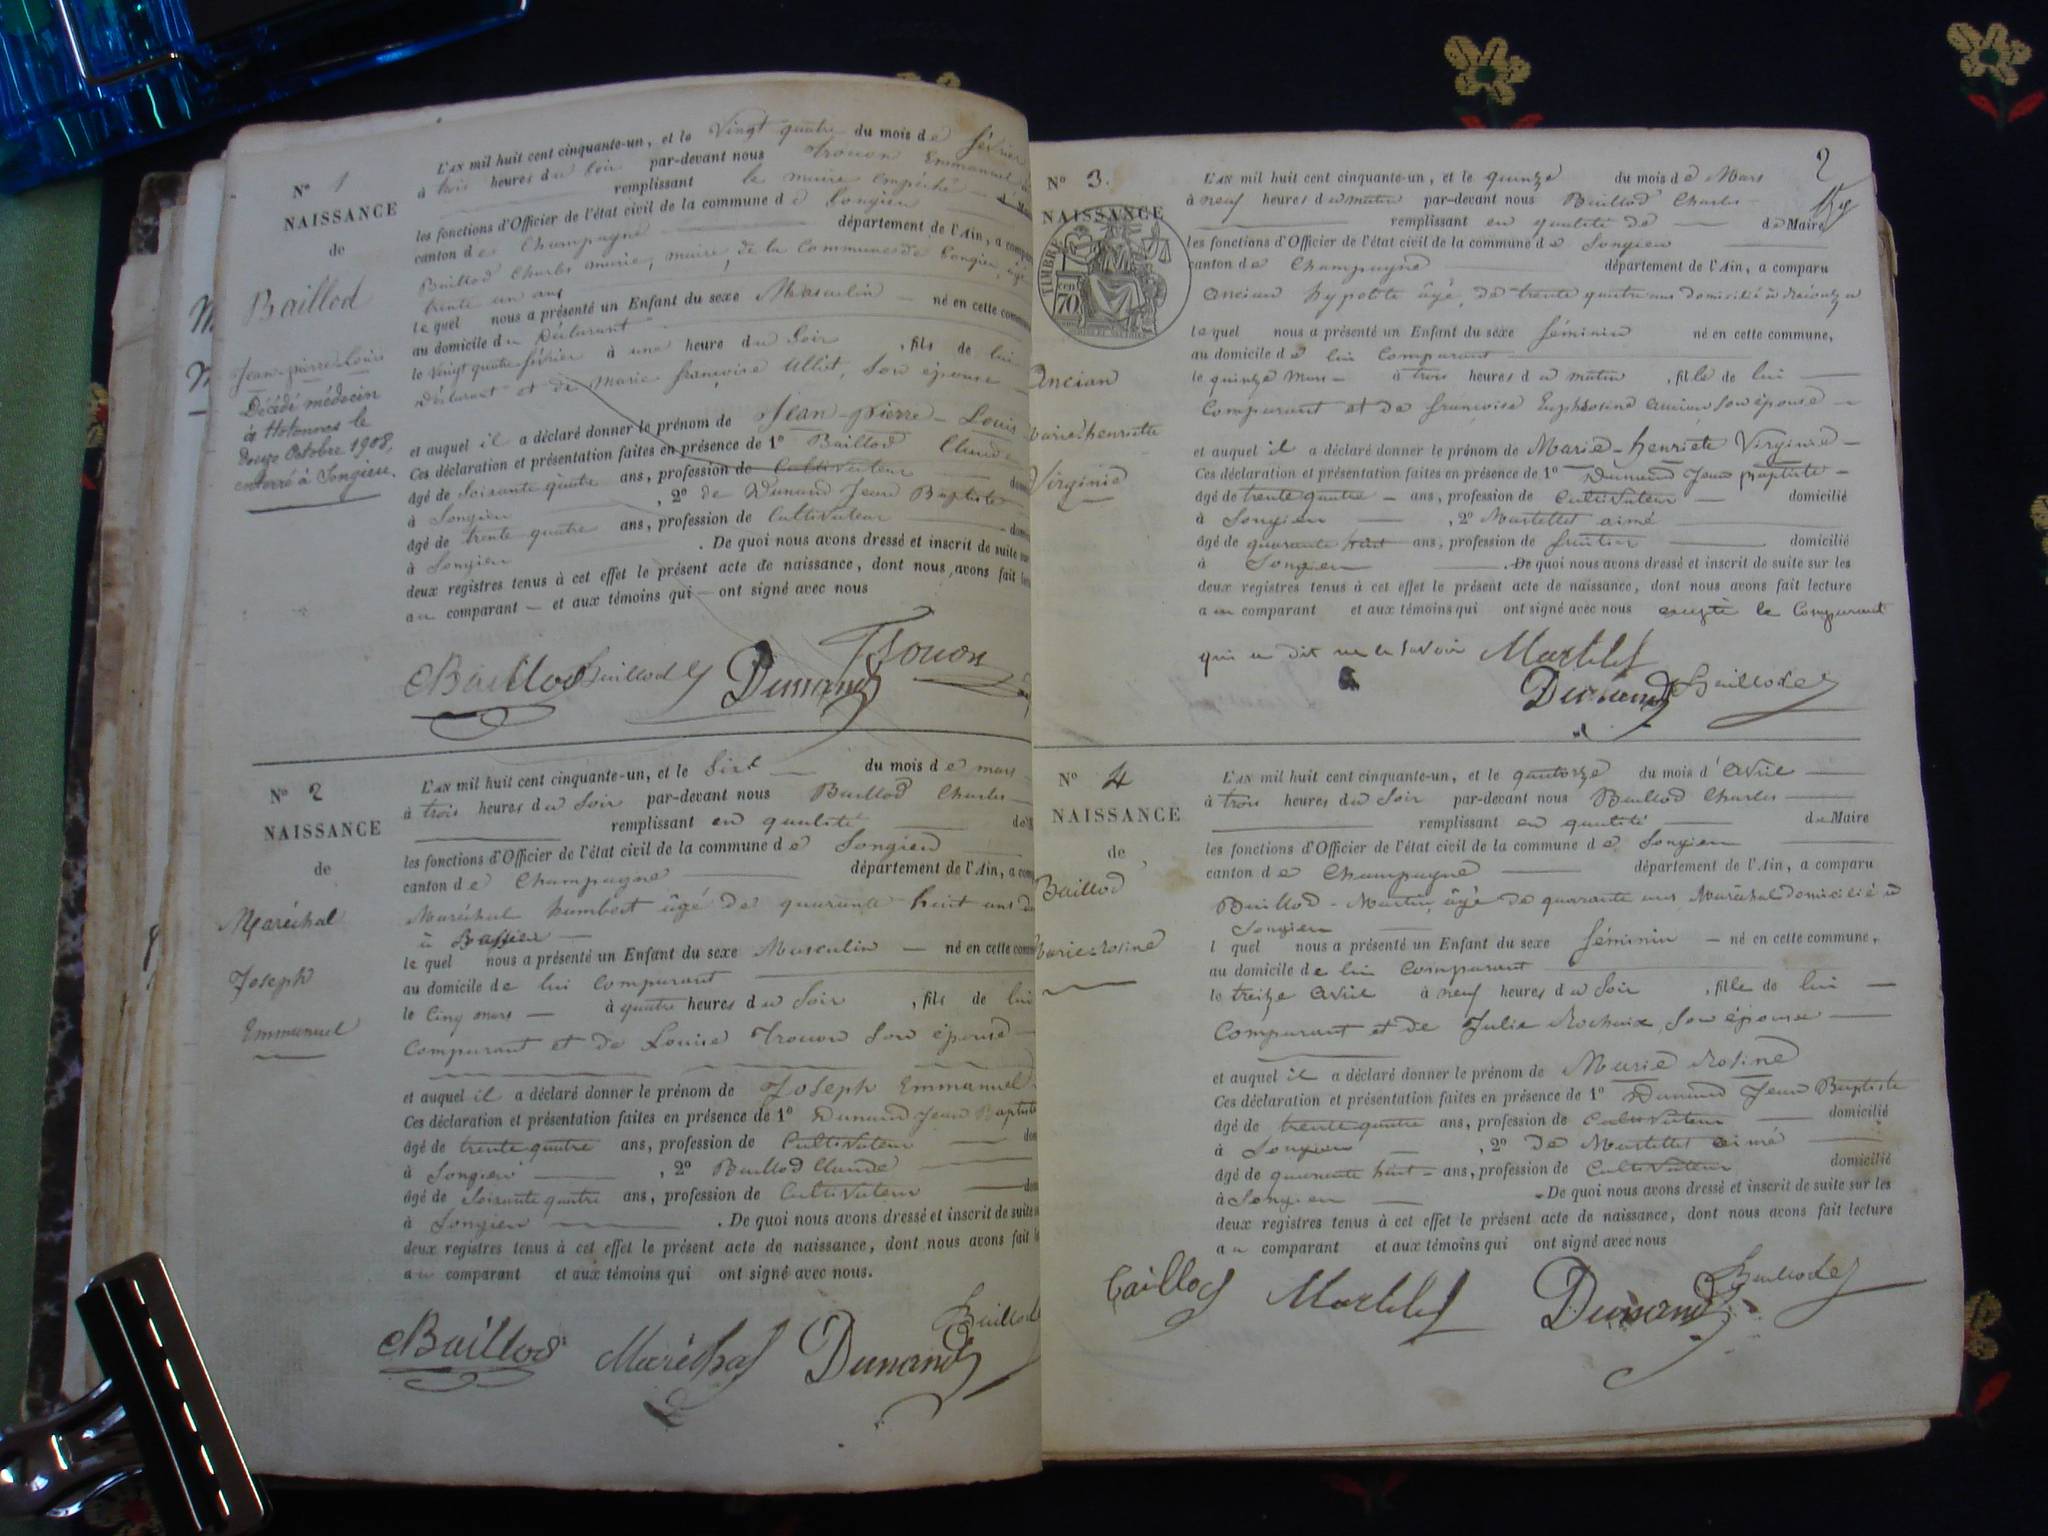 N° 1
NAISSANCE
de
Baillod
Jean-pierre-Louis
Décédé médecin
à Hotonnes le
douze Octobre 1908,
enterré à Songieu.
L'AN mil huit cent cinquante-un, et le Vingt quatre du mois de février
à trois heures du Soir par-devant nous Trouon Emmanuel
remplissant le maire empêché
les fonctions d'Officier de l'état civil de la commune de Songieu
canton de Champagne département de l'Ain, a comparu
Baillod Charles marie, maire, de la Commune de Songieu, âgé
trente un ans
le quel nous a présenté un Enfant du sexe Masculin né en cette commune
au domicile du Déclarant
le Vingt quatre février à une heure du Soir, fils de lui
Déclarant et de Marie françoise Ulliet, Son épouse
et auquel il a déclaré donner le prénom de Jean-Pierre-Louis
Ces déclaration et présentation faites en présence de 1° Baillod Claude
âgé de Soixante quatre ans, profession de Cultivateur
à Songieu, 2° de Dunand Jean Baptiste
âgé de trente quatre ans, profession de Cultivateur
à Songieu. De quoi nous avons dressé et inscrit de suite sur
deux registres tenus à cet effet le présent acte de naissance, dont nous avons fait
au comparant et aux témoins qui ont signé avec nous
Baillod Baillod Dunand Trouon
N° 2
NAISSANCE
de
Maréchal
Joseph
Emmanuel
L'AN mil huit cent cinquante-un, et le Six du mois de mars
à trois heures du Soir par-devant nous Baillod Charles
remplissant en qualité de
les fonctions d'Officier de l'état civil de la commune de Songieu
canton de Champagne département de l'Ain, a comp
Maréchal humbert âgé de quarante huit ans
à Bassieu
le quel nous a présenté un Enfant du sexe Masculin né en cette comm
au domicile de lui Comparant
le Cinq mars à quatre heures du Soir, fils de lui
Comparant et de Louise Trouon Son épouse
et auquel il a déclaré donner le prénom de Joseph Emmanuel
Ces déclaration et présentation faites en présence de 1° Dunand Jean Baptiste
âgé de trente quatre ans, profession de Cultivateur
à Songieu, 2° Baillod Claude
âgé de Soixante quatre ans, profession de Cultivateur
à Songieu. De quoi nous avons dressé et inscrit de suite
deux registres tenus à cet effet le présent acte de naissance, dont nous avons fait
au comparant et aux témoins qui ont signé avec nous.
Baillod Maréchal Dunand Baillod
2
N° 3.
NAISSANCE
TIMBRE
70
Ancian
Marie-henriette
Virginie
L'AN mil huit cent cinquante-un, et le quinze du mois de Mars
à neuf heures du matin par-devant nous Baillod Charles
remplissant en qualité de de Maire
les fonctions d'Officier de l'état civil de la commune de Songieu
canton de Champagne département de l'Ain, a comparu
Ancian hypolite âgé, de trente quatre ans domicilié à
le quel nous a présenté un Enfant du sexe féminin né en cette commune,
au domicile de lui Comparant
le quinze Mars à trois heures du matin, fille de lui
Comparant et de françoise Euphrosine Ancian Son épouse
et auquel il a déclaré donner le prénom de Marie-henriete Virginie
Ces déclaration et présentation faites en présence de 1° Dunand Jean baptiste
âgé de trente quatre ans, profession de Cultivateur domicilié
à Songieu, 2° Martellet aimé
âgé de quarante huit ans, profession de fruitier domicilié
à Songieu. De quoi nous avons dressé et inscrit de suite sur les
deux registres tenus à cet effet le présent acte de naissance, dont nous avons fait lecture
au comparant et aux témoins qui ont signé avec nous excepté le Comparant
qui a dit ne le Savoir Martelet
Dunand Baillod
N° 4
NAISSANCE
de
Baillod
Marie-Rosine
L'AN mil huit cent cinquante-un, et le quatorze du mois d'Avril
à trois heures du Soir par-devant nous Baillod Charles
remplissant en qualité de Maire
les fonctions d'Officier de l'état civil de la commune de Songieu
canton de Champagne département de l'Ain, a comparu
Baillod-Martin, âgé de quarante ans Maréchal domicilié à
Songieu
l quel nous a présenté un Enfant du sexe féminin né en cette commune,
au domicile de lui Comparant
le treize Avril à neuf heures du Soir, fille de lui
Comparant et de Julie Rochaix, Son épouse
et auquel il a déclaré donner le prénom de Marie Rosine
Ces déclaration et présentation faites en présence de 1° Dunand Jean Baptiste
âgé de trente quatre ans, profession de Cultivateur domicilié
à Songieu, 2° de Martellet aimé
âgé de quarante huit ans, profession de Cultivateur domicilié
à Songieu De quoi nous avons dressé et inscrit de suite sur les
deux registres tenus à cet effet le présent acte de naissance, dont nous avons fait lecture
au comparant et aux témoins qui ont signé avec nous
Baillod Martelet Dunand Baillod